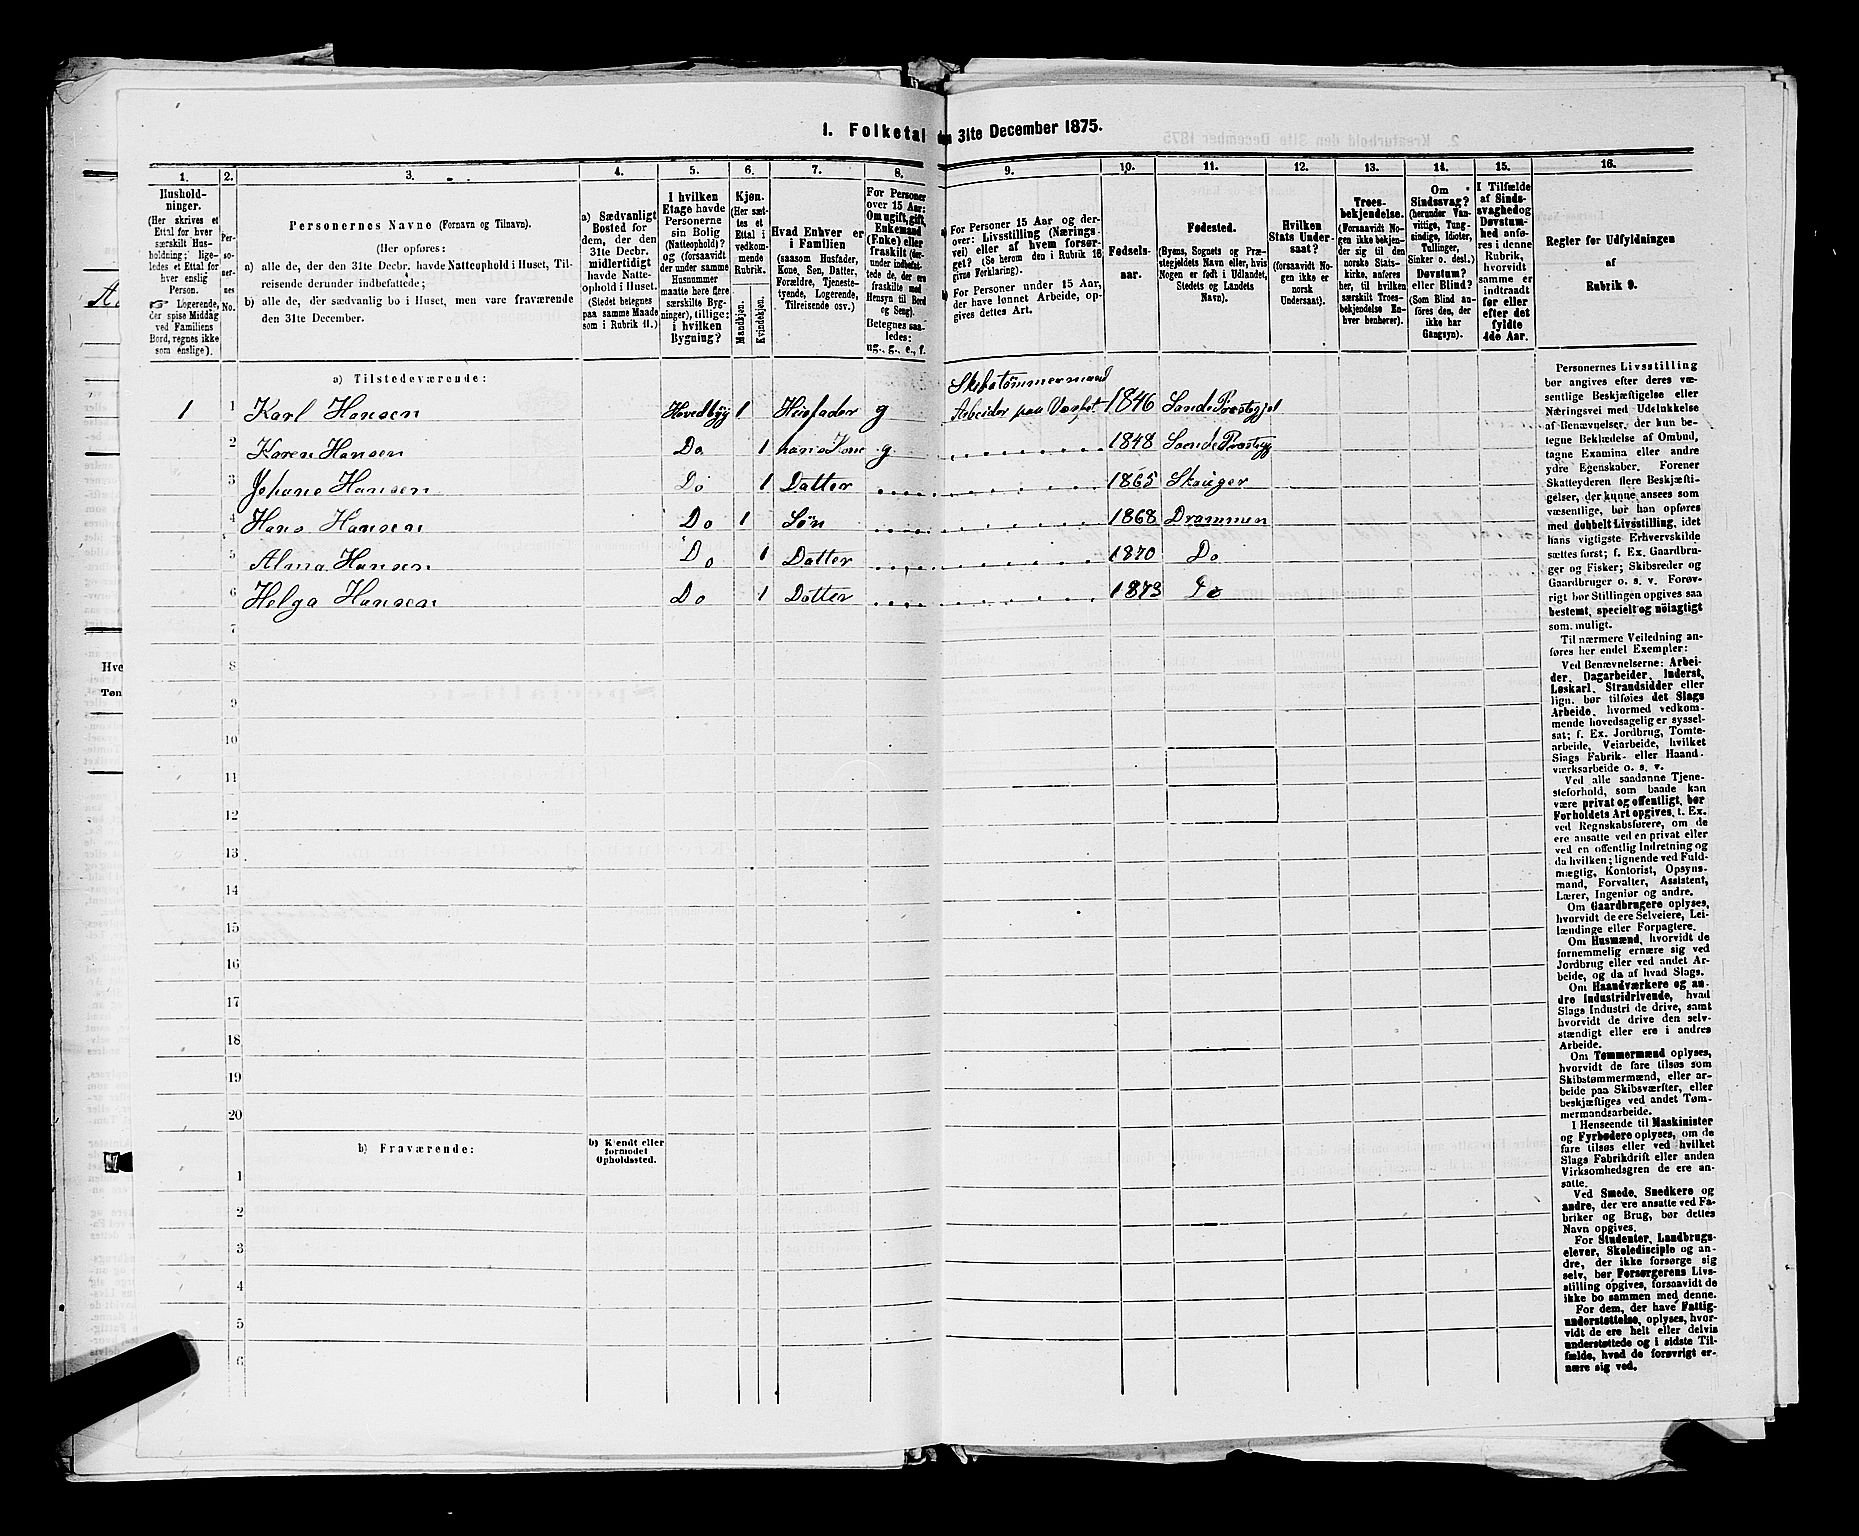 1. Folketal den 31te December 1875.
1. 2. 3. 4. 5. 6. 7. 8. 9. 10. 11. 12. 13. 14. 15. 16.
Hushold-
ninger.
(Her skrives et
Ettal for hver
særskilt Hus-
holdning; lige-
ledes et Ettal for
hver enslig
Person.
Logerende,
der spise Middag
ved Familiens
Bord, regnes ikke
som enslige).
Per-
so-
ner-
nes
No.
Personernes Navne (Fornavn og Tilnavn).
(Her opføres:
a) alle de, der den 31te Decbr. havde Natteophold i Huset, Til-
reisende derunder indbefattede;
b) alle de, der sædvanlig bo i Huset, men vare fraværende
den 31te December.
a) Sædvanligt
Bosted for
dem, der den
31te Decbr.
midlertidigt
havde Natte-
ophold i Huset.
(Stedet betegnes
paa samme Maade
som i Rubrik 11.)
I hvilken
Etage havde
Personerne
sin Bolig
(Natteophold)?
og (forsaavidt
der under samme
Husnummer
maatte høre flere
særskilte Byg-
ninger), tillige:
i hvilken
Bygning?
Kjøn.
(Her sæt-
tes et
Ettal i
vedkom-
mende
Rubrik.
Mandkjøn.
Kvindekjøn.
Hvad Enhver er
i Familien
(saasom Husfader,
Kone, Søn, Datter,
Forældre, Tjeneste-
tyende, Logerende,
Tilreisende osv.)
For Personer
over 15 Aar:
Om ugift, gift,
Enkemand
(Enke) eller
fraskilt (der-
under indbefat-
tede de, der ere
fraskilte med
Hensyn til Bord
og Seng).
Betegnes saa-
ledes:
ug., g., e., f.
a) For Personer 15 Aar og der-
over: Livsstilling (Nærings-
vei) eller af hvem forsør-
get? (Se herom den i Rubrik 16
givne Forklaring).
b) For Personer under 15 Aar,
der have lønnet Arbeide, op-
gives dettes Art.
Fødsels-
aar.
Fødested.
(Byens, Sognets og Præ-
stegjeldets Navn eller, hvis
Nogen er født i Udlandet,
Stedets og Landets
Navn).
Hvilken
Stats Under-
saat?
(forsaavidt No-
gen ikke er
norsk
Undersaat).
Troes-
bekjendelse.
(Forsaavidt No-
gen ikke bekjen-
der sig til den
norske Stats-
kirke, anføres
her, til hvilken
særskilt Troes-
bekjendelse En-
hver henhører).
Om
Sindssvag?
(herunder Van-
vittige, Tung-
sindige, Idioter,
Tullinger,
Sinker o. desl.)
Døvstum?
eller Blind?
(Som Blind an-
føres den, der
ikke har
Gangsyn).
I Tilfælde
af Sinds-
svaghed og
Døvstum-
hed anfø-
res i denne
Rubrik,
hvorvidt
samme er
indtraadt
før eller
efter det
fyldte
4de Aar.
Regler for Udfyldningen
af
Rubrik 9.
a) Tilstedeværende:
Skibstømmermand
1 1 Karl Hansen Hovedbyg 1 Husfader g Arbeider paa Værftet 1846 Sande Præstegjel
2 Karen Hansen Do 1 hans Kone g 1848 Sande Præsteg
3 Johane Hansen Do 1 Datter 1865 Skouger
4 Hans Hansen Do 1 Søn 1868 Drammen
5 Alma Hansen Do 1 Datter 1870 Do
6 Helga Hansen Do 1 Datter 1873 Do
7
8
9
10
11
12
13
14
15
16
17
18
19
20
b) Fraværende:
b) Kjendt eller
formodet
Opholdssted.
1
2
3
4
5
6
Personernes Livsstilling
bør angives efter deres væ-
sentlige Beskjæftigelse eller
Næringsvei med Udelukkelse
af Benævnelser, der kun be-
tegne Beklædelse af Ombud,
tagne Examina eller andre
ydre Egenskaber. Forener
Skatteyderen flere Beskjæfti-
gelser, der kunne ansees som
væsentlige, bør han opføres
med dobbelt Livsstilling, idet
hans vigtigste Erhvervskilde
sættes først; f. Ex. Gaardbru-
ger og Fisker; Skibsreder og
Gaardbruger o. s. v. Forøv-
rigt bør Stillingen opgives saa
bestemt, specielt og nöiagtigt
som muligt.
Til nærmere Veiledning an-
føres her endel Exempler:
Ved Benævnelserne: Arbei-
der, Dagarbeider, Inderst,
Løskarl, Strandsidder eller
lign. bør tilføies det Slags
Arbeide, hvormed vedkom-
mende hovedsagelig er syssel-
sat; f. Ex. Jordbrug, Tomte-
arbeide, Veiarbeide, hvilket
Slags Fabrik- eller Haand-
værksarbeide o. s. v.
Ved alle saadanne Tjene-
steforhold, som baade kan
være privat og offentligt, bør
Forholdets Art opgives, f. Ex.
ved Regnskabsførere, om de
ere ansatte ved en privat eller
ved en offentlig Indretning og
da hvilken; lignende ved Fuld-
mægtig, Kontorist, Opsyns-
mand, Forvalter, Assistent,
Lærer, Ingeniør og andre.
Om Gaardbrugere oplyses,
hvorvidt de ere Selveiere, Lei-
lændinge eller Forpagtere.
Om Husmænd, hvorvidt de
fornemmelig ernære sig ved
Jordbrug eller ved andet Ar-
beide, og da af hvad Slags.
Om Haandværkere og an-
dre Industridrivende, hvad
Slags Industri de drive, samt
hvorvidt de drive den selv-
stændigt eller ere i andres
Arbeide.
Om Tømmermænd oplyses,
hvorvidt de fare tilsøs som
Skibstømmermænd, eller ar-
beide paa Skibsværfter, eller
beskjæftiges ved andet Tøm-
mermandsarbeide.
I Henseende til Maskinister
og Fyrbødere oplyses, om de
fare tilsøs eller ved hvilket
Slags Fabrikdrift eller anden
Virksomhedsgren de ere an-
satte.
Ved Smede, Snedkere og
andre, der ere ansatte ved Fa-
briker og Brug, bør dettes
Navn opgives.
For Studenter, Landbrugs-
elever, Skoledisciple og an-
dre, der ikke forsørge sig
selv, bør Forsørgerens Livs-
stilling opgives, forsaavidt de
ikke bo sammen med denne.
For dem, der have Fattig-
understøttelse, oplyses, hvor-
vidt de ere helt eller delvis
understøttede og i sidste Til-
fælde, hvad de forøvrigt er-
nære sig ved.